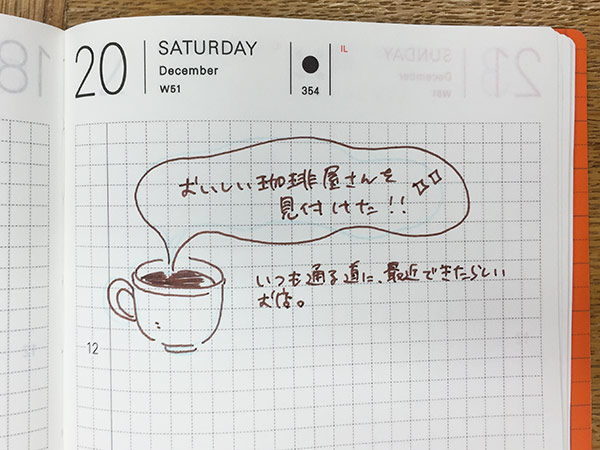 20
SATURDAY
December
W51
354
IL
SUNDAY
December
W51
21
18
おいしい珈琲屋さんを
見付けた!!
いつも通る道に、最近できたらしい
お店。
12